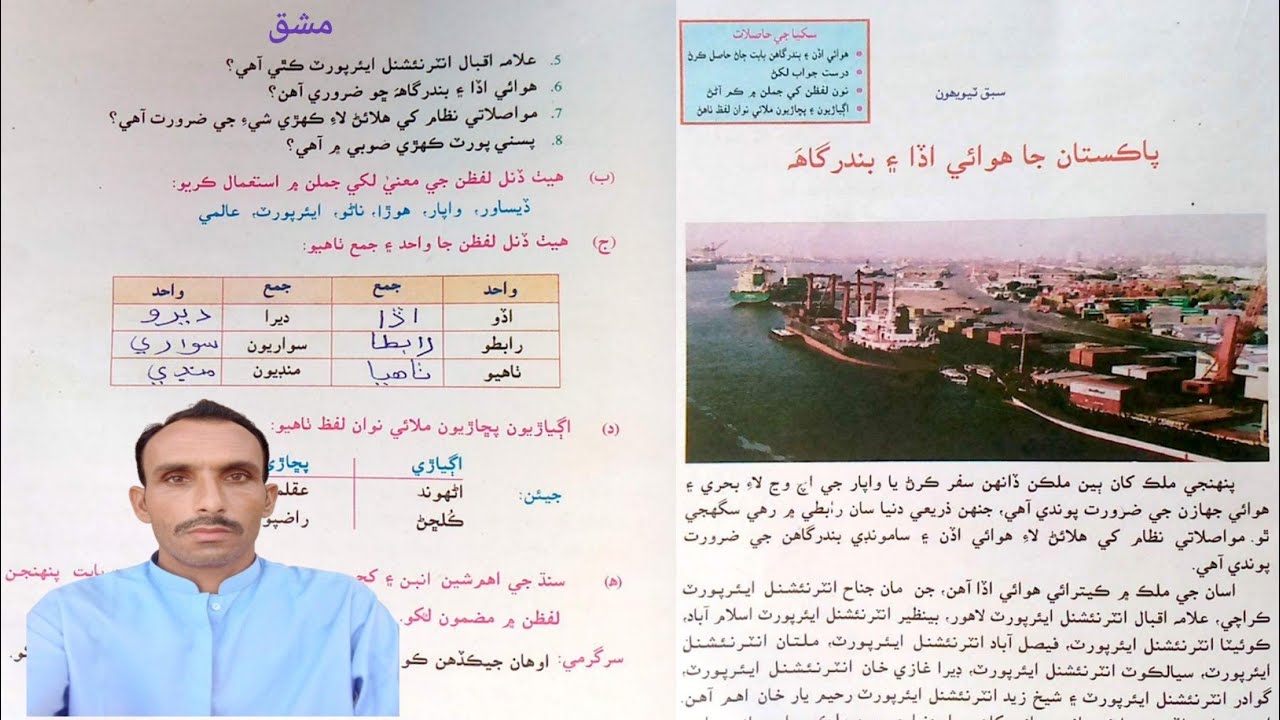 مشق
5. علامہ اقبال انٽرنئشنل ايئرپورٽ ڪٿي آهي؟
6. هوائي اڏا ۽ بندرگاهَہ ڇو ضروري آهن؟
7. مواصلاتي نظام کي هلائڻ لاءِ ڪهڙي شيءِ جي ضرورت آهي؟
8. پسني پورٽ ڪهڙي صوبي ۾ آهي؟
(ب) هيٺ ڏنل لفظن جي معنيٰ لکي جملن ۾ استعمال ڪريو:
ڏيساور، واپار، هوڙا، ناڻو، ايئرپورٽ، عالمي
(ج) هيٺ ڏنل لفظن جا واحد ۽ جمع ٺاهيو:
واحد جمع جمع واحد
اڏو اڏا ديرا ديرو
رابطو رابطا سواريون سواري
ٺاهيو ٺاهيا منڊيون منڊي
(د) اڳياڙيون پڇاڙيون ملائي نوان لفظ ٺاهيو:
اڳياڙي
جيئن: اڻهوند
ڪُلڇڻ راضپو
(ھ) سنڌ جي اهم شين انبن ۽ بابت پنهنجن
لفظن ۾ مضمون لکو.
سرگرمي: اوهان جيڪڏهن
سکيا جي حاصلات
• هوائي اڏن ۽ بندرگاهن بابت ڄاڻ حاصل ڪرڻ
• درست جواب لکڻ
• نون لفظن کي جملن ۾ ڪم آڻڻ
• اڳياڙيون ۽ پڇاڙيون ملائي نوان لفظ ٺاهڻ
سبق ٽيويهون
پاڪستان جا هوائي اڏا ۽ بندرگاهَہ
پنهنجي ملڪ کان ٻين ملڪن ڏانهن سفر ڪرڻ يا واپار جي اچ وڃ لاءِ بحري ۽
هوائي جهازن جي ضرورت پوندي آهي، جنهن ذريعي دنيا سان رابطي ۾ رهي سگهجي
ٿو. مواصلاتي نظام کي هلائڻ لاءِ هوائي اڏن ۽ سامونڊي بندرگاهن جي ضرورت
پوندي آهي.
اسان جي ملڪ ۾ ڪيترائي هوائي اڏا آهن، جن مان جناح انٽرنئشنل ايئرپورٽ
ڪراچي، علامہ اقبال انٽرنئشنل ايئرپورٽ لاهور، بينظير انٽرنئشنل ايئرپورٽ اسلام آباد،
ڪوئيٽا انٽرنئشنل ايئرپورٽ، فيصل آباد انٽرنئشنل ايئرپورٽ، ملتان انٽرنئشنل
ايئرپورٽ، سيالڪوٽ انٽرنئشنل ايئرپورٽ، ڊيرا غازي خان انٽرنئشنل ايئرپورٽ،
گوادر انٽرنئشنل ايئرپورٽ ۽ شيخ زيد انٽرنئشنل ايئرپورٽ رحيم يار خان اهم آهن.